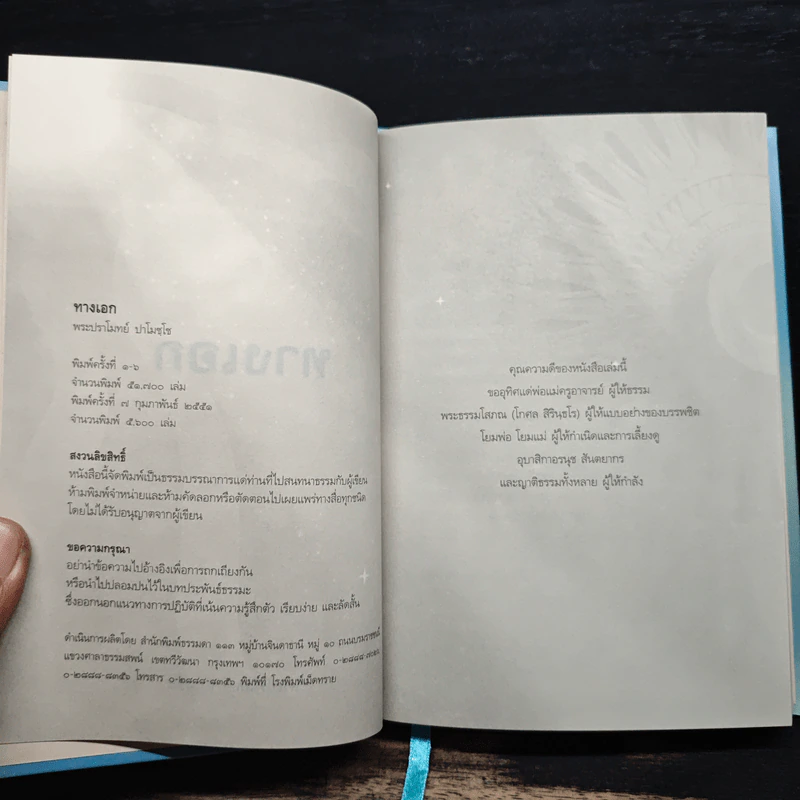 ทางเอก
พระปราโมทย์ ปาโมชฺโช
พิมพ์ครั้งที่ ๑-๖
จำนวนพิมพ์ ๕๑,๗๐๐ เล่ม
พิมพ์ครั้งที่ ๗ กุมภาพันธ์ ๒๕๕๑
จำนวนพิมพ์ ๕,๖๐๐ เล่ม
สงวนลิขสิทธิ์
หนังสือนี้จัดพิมพ์เป็นธรรมบรรณาการแด่ท่านที่ไปสนทนาธรรมกับผู้เขียน
ห้ามพิมพ์จำหน่ายและห้ามคัดลอกหรือตัดตอนไปเผยแพร่ทางสื่อทุกชนิด
โดยไม่ได้รับอนุญาตจากผู้เขียน
ขอความกรุณา
อย่านำข้อความไปอ้างอิงเพื่อการถกเถียงกัน
หรือนำไปปลอมปนไว้ในบทประพันธ์ธรรมะ
ซึ่งออกนอกแนวทางการปฏิบัติที่เน้นความรู้สึกตัว เรียบง่าย และลัดสั้น
ดำเนินการผลิตโดย สำนักพิมพ์ธรรมดา ๑๑๓ หมู่บ้านจินดาธานี หมู่ ๑๐ ถนนบรมราชชนนี
แขวงศาลาธรรมสพน์ เขตทวีวัฒนา กรุงเทพฯ ๑๐๑๗๐ โทรศัพท์
๐-๒๘๘๘-๘๓๕๖ โทรสาร ๐-๒๘๘๘-๘๓๕๖ พิมพ์ที่ โรงพิมพ์เม็ดทราย
คุณความดีของหนังสือเล่มนี้
ขออุทิศแด่พ่อแม่ครูอาจารย์ ผู้ให้ธรรม
พระธรรมโสภณ (โกศล สิรินฺธโร) ผู้ให้แบบอย่างของบรรพชิต
โยมพ่อ โยมแม่ ผู้ให้กำเนิดและการเลี้ยงดู
อุบาสิกาอรนุช สันตยากร
และญาติธรรมทั้งหลาย ผู้ให้กำลัง